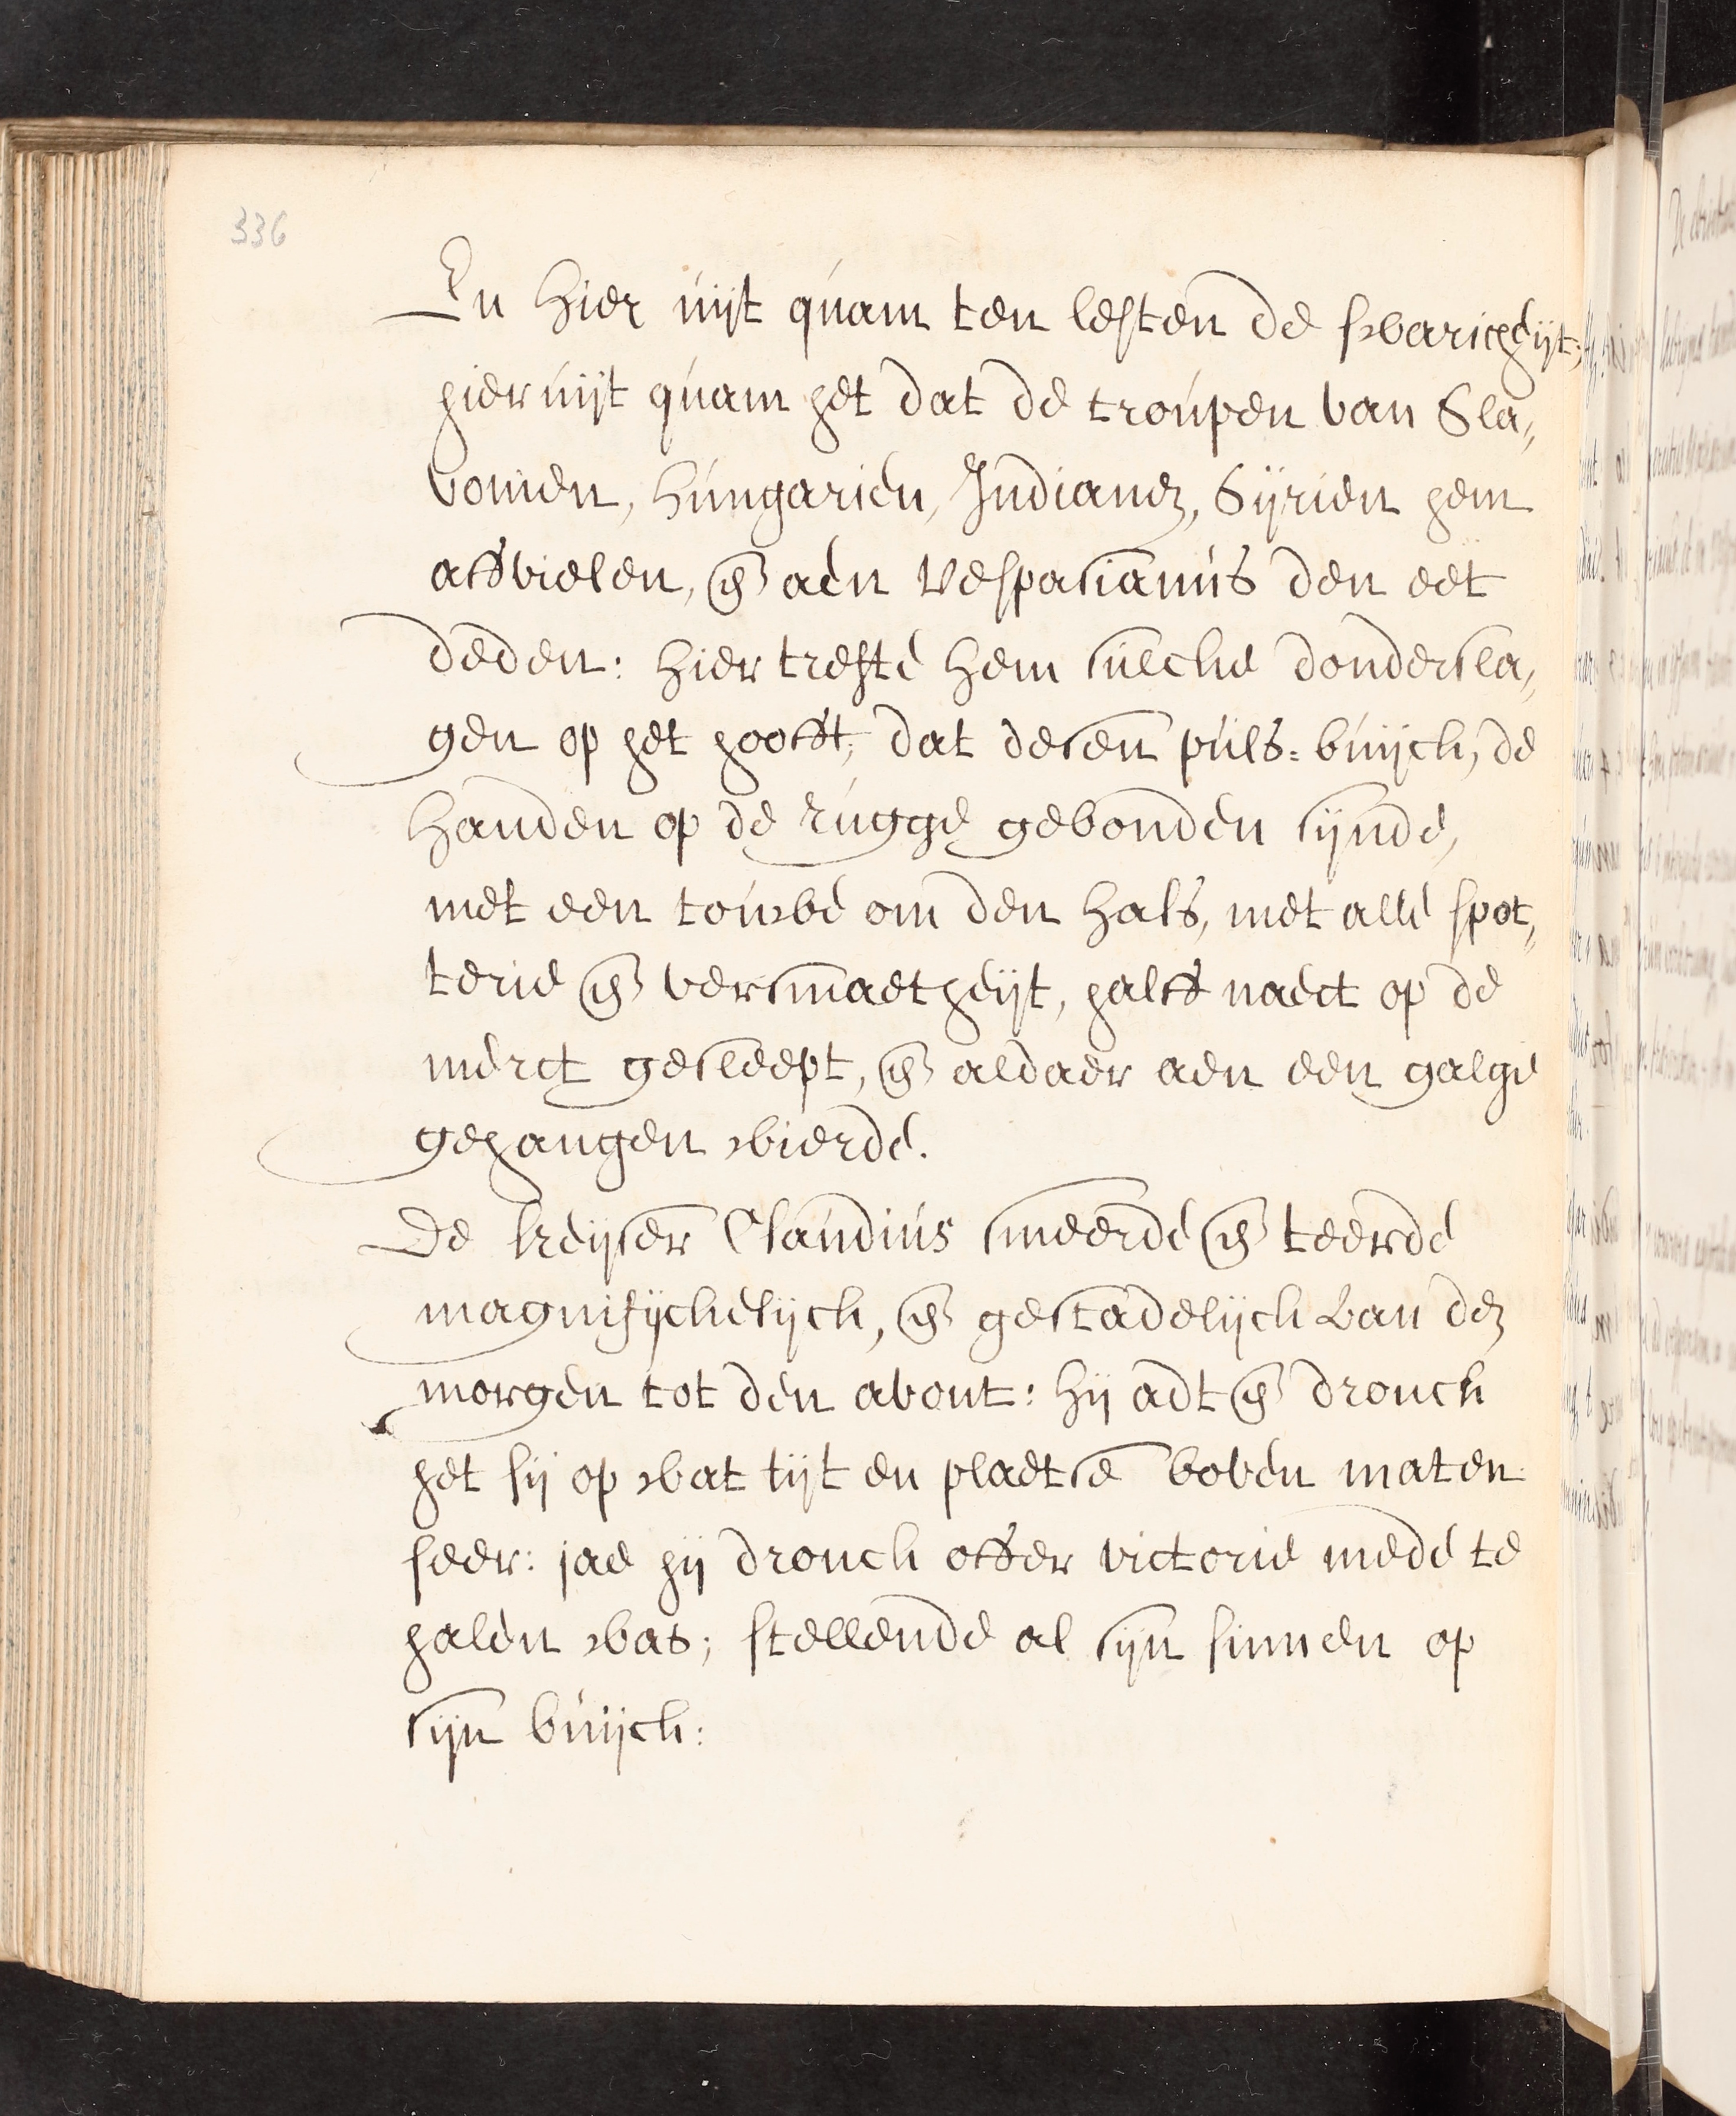 336
En hier uijt quam ten lesten de swaricheijt;
hier uijt quam het dat de troupen van Sla,
vonien, Hungarien, Indianen, Sijrien hem
affvielen, en aen Vespasianus den eet
deden: hier treste hem sulcke dondersla,
gen op het hooft, dat desen puls=buijck, de
handen op de rugge gebonden sijnde,
met een touwe om den hals, met alle spot,
terie en versmaetheijt, halff naect op de
merct gesleept, en aldaer aen een galge
gehangen wierde.
De keijser Claudius smeerde en teerde
magnifijckelijck, en gestadelijck van den
morgen tot den avont: hij adt en dronck
het sij op wat tijt en plaetse boven maten
seer: jae hij dronck offer victorie mede te
halen was; stellende al sijn sinnen op
sijn buijck: